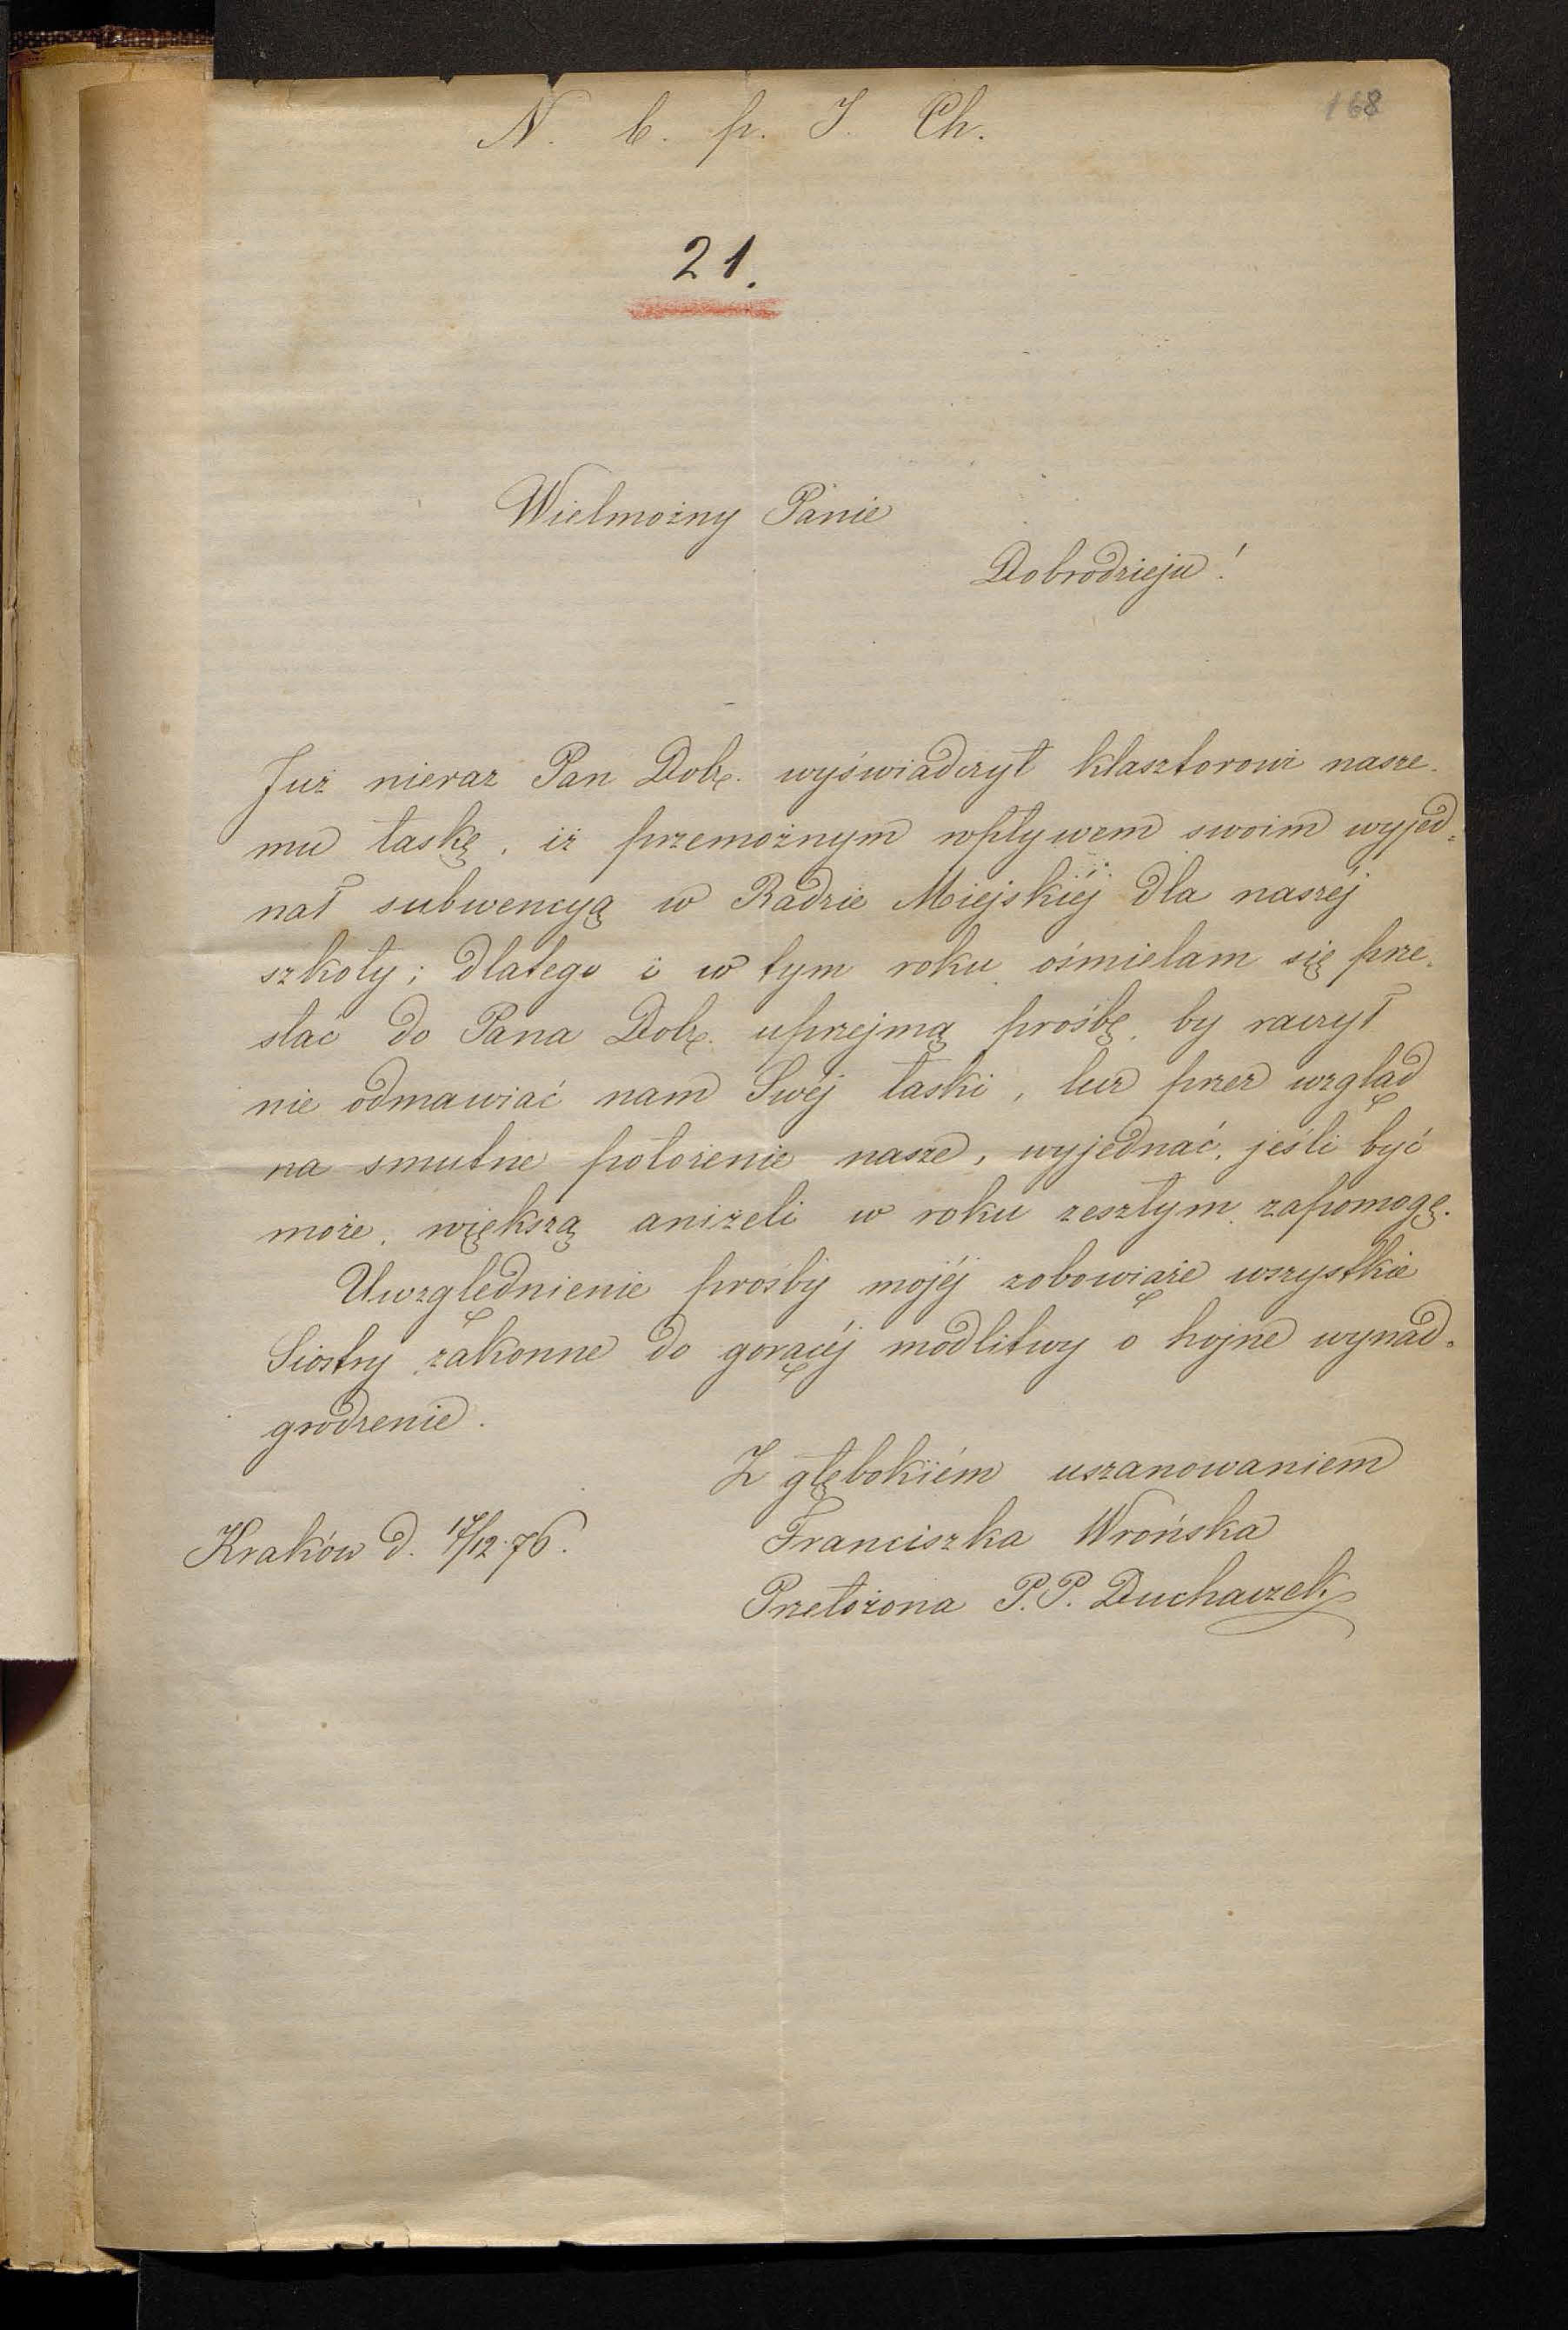 168
N. b. p. J. Ch.
21.
Wielmożny Panie
Dobrodzieju!
Już nieraz Pan Dobr. wyświadczył klasztorowi nasze-
mu łaskę, iż przemożnym wpływem swoim wyjed-
nał subwencyą w Radzie Miejskiéj dla naszéj
szkoły; dlatego i w tym roku ośmielam się prze-
słać do Pana Dobr. uprzejmą prośbę, by raczył
nie odmawiać nam Swéj łaski, lecz przez wzgląd
na smutne położenie nasze, wyjednać, jeśli być
może, większą aniżeli w roku zeszłym zapomogę.
Uwzględnienie prośby mojéj zobowiąże wszystkie
Siostry zakonne do gorącéj modlitwy o hojne wynad-
grodzenie.
Z głębokiém uszanowaniem
Kraków d. 17/12 76.
Franciszka Wrońska
Przełożona P.P. Duchaczek